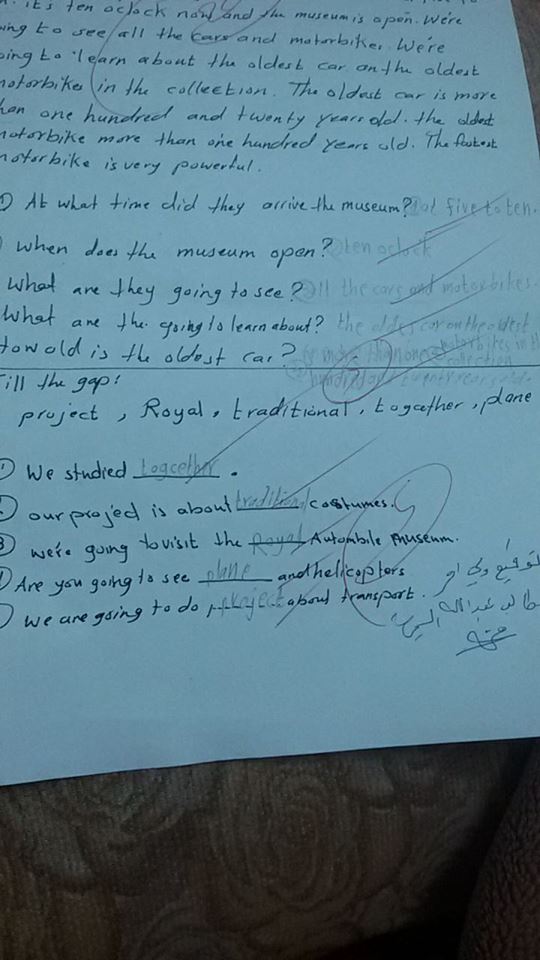 it's ten oclock now and the museum is open. We're
ing to see all the cars and motorbikes. We're
oing to learn about the oldest car on the oldest
notorbikes in the collection. The oldest car is more
han one hundred and twenty years old. the oldest
notorbike more than one hundred years old. The fastest
notorbike is very powerful.
At what time did they arrive the museum? at five to ten.
when does the museum open? ten oclock
What are they going to see? all the cars and motorbikes.
What are the going to learn about? the oldest car on the oldest
motorbikes in th
collection
tow old is the oldest car? more than one
hundred and twenty years old.
Fill the gap:
project, Royal, traditional, togather, plane
① We studied togcether.
our project is about traditional costumes.
③ we're going to visit the Royal Autombile museum.
Are you going to see plane and helicopters
we are going to do project about transport.
توقيع ولي أمر